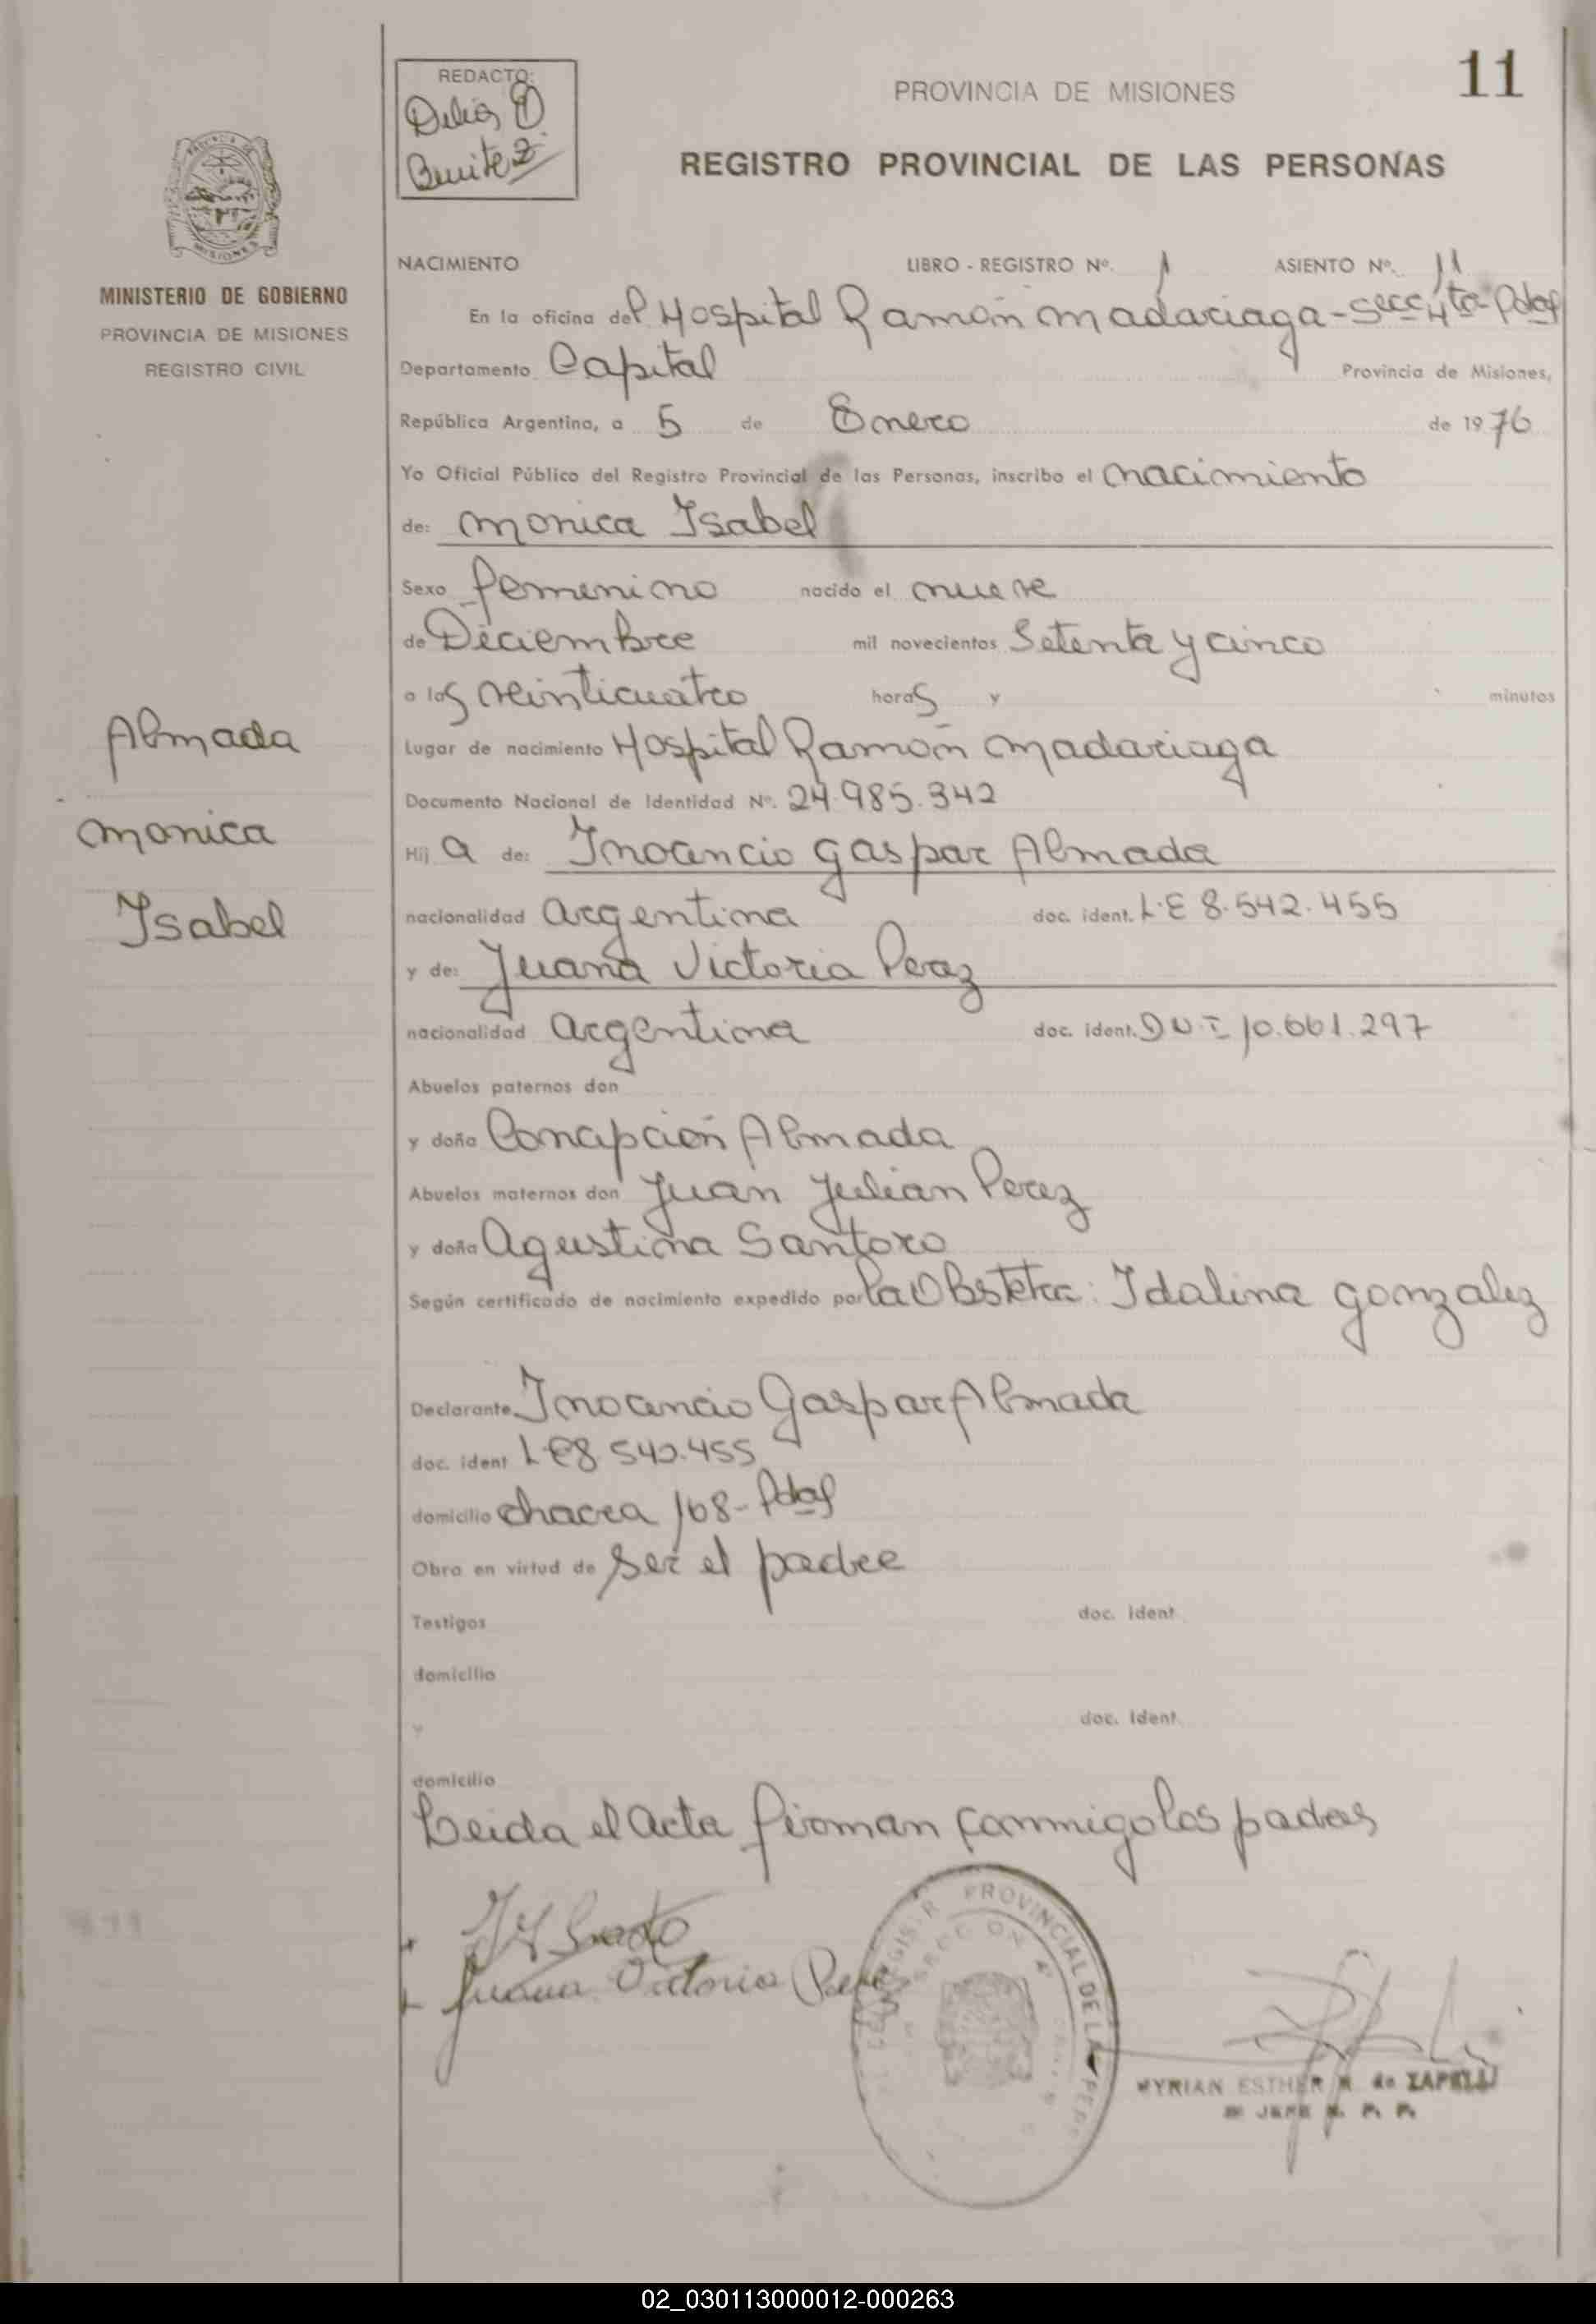 11
REDACTO:
Delia B
Benitez
PROVINCIA DE MISIONES
REGISTRO PROVINCIAL DE LAS PERSONAS
MISIONES
MINISTERIO DE GOBIERNO
PROVINCIA DE MISIONES
REGISTRO CIVIL
Almada
Monica
Isabel
NACIMIENTO LIBRO - REGISTRO Nº. 1 ASIENTO Nº. 11
En la oficina del Hospital Ramón Madariaga - Secc 4ta - Pdas
Departamento Capital Provincia de Misiones,
República Argentina, a 5 de Enero de 1976
Yo Oficial Público del Registro Provincial de las Personas, inscribo el Nacimiento
de: Monica Isabel
Sexo femenino nacido el nueve
de Diciembre mil novecientos Setenta y cinco
a las veinticuatro horas y minutos
Lugar de nacimiento Hospital Ramón Madariaga
Documento Nacional de Identidad Nº. 24.985.342
Hij a de: Inocencio Gaspar Almada
nacionalidad argentina doc. ident. L.E 8.542.455
y de: Juana Victoria Perez
nacionalidad argentina doc. ident. DNI 10.661.297
Abuelos paternos don
y doña Concepción Almada
Abuelos maternos don Juan Julian Perez
y doña Agustina Santoro
Según certificado de nacimiento expedido por la Obstetra: Idalina Gonzalez
Declarante Inocencio Gaspar Almada
doc. ident L.E 8 542.455
domicilio Chacra 168 - Pdas
Obra en virtud de ser el padre
Testigos doc. ident
domicilio
y doc. ident.
domicilio
Leida el acta firman conmigo los padres
Juana Victoria Perez
REGISTR PROVINCIAL DE LA PER
SECCION 4ª
MYRIAN ESTHER N. de ZAPELLI
JEFE R. P. P.
02_030113000012-000263